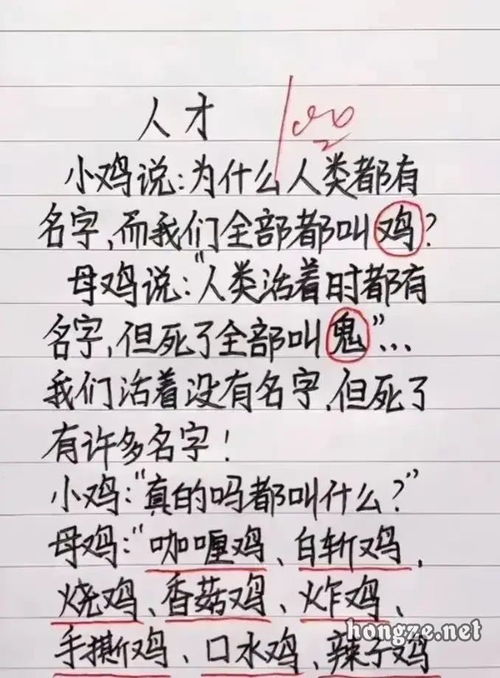 人才 100
小鸡说:为什么人类都有
名字,而我们全部都叫鸡?
母鸡说:"人类活着时都有
名字,但死了全部叫鬼"...
我们活着没有名字,但死了
有许多名字!
小鸡:"真的吗都叫什么?"
母鸡:"咖喱鸡、白斩鸡、
烧鸡、香菇鸡、炸鸡、
hongze.net
手撕鸡、口水鸡、辣子鸡